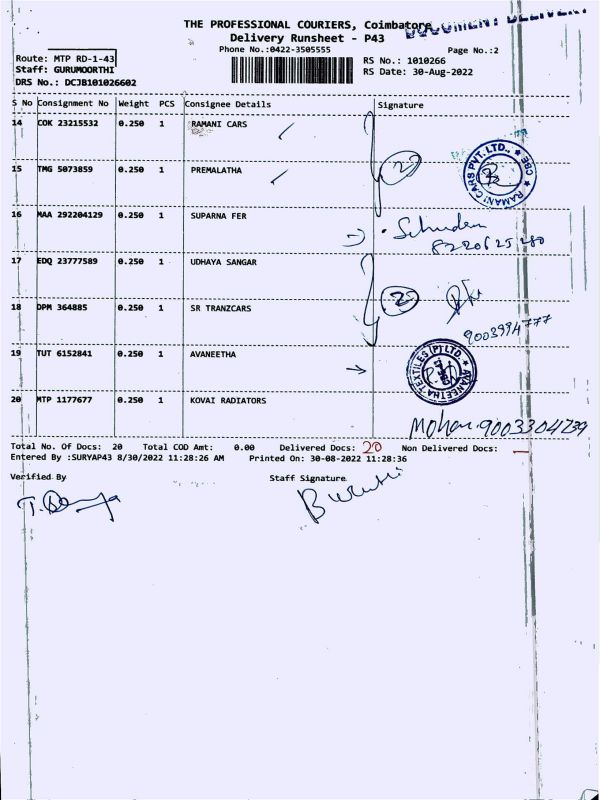 THE PROFESSIONAL COURIERS, Coimbatore
DOCUMENT DELIVERY
Delivery Runsheet - P43
Phone No.:0422-3505555
Page No.:2
Route: MTP RD-1-43
Staff: GURUMOORTHI
DRS No.: DCJB101026602
RS No.: 1010266
RS Date: 30-Aug-2022
S No Consignment No Weight PCS Consignee Details Signature
14 COK 23215532 0.250 1 RAMANI CARS
15 TMG 5073859 0.250 1 PREMALATHA
2
RAMANI CARS PVT. LTD., ★ CBE ★
16 MAA 292204129 0.250 1 SUPARNA FER
8220625280
17 EDQ 23777589 0.250 1 UDHAYA SANGAR
18 DPM 364885 0.250 1 SR TRANZCARS
2
9003994777
19 TUT 6152841 0.250 1 AVANEETHA
AVANEETHA TEXTILES (P) LTD.
20 MTP 1177677 0.250 1 KOVAI RADIATORS
Mohan 9003304739
Total No. Of Docs: 20 Total COD Amt: 0.00 Delivered Docs: 20 Non Delivered Docs: —
Entered By :SURYAP43 8/30/2022 11:28:26 AM Printed On: 30-08-2022 11:28:36
Verified By Staff Signature